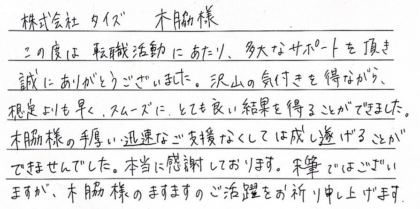 株式会社 タイズ 木脇様
この度は 転職活動にあたり、多大なサポートを頂き
誠にありがとうございました。沢山の気付きを得ながら、
想定よりも早く、スムーズに、とても良い結果を得ることができました。
木脇様の手厚い・迅速なご支援なくしては成し遂げることが
できませんでした。本当に感謝しております。末筆ではござい
ますが、木脇様のますますのご活躍をお祈り申し上げます.